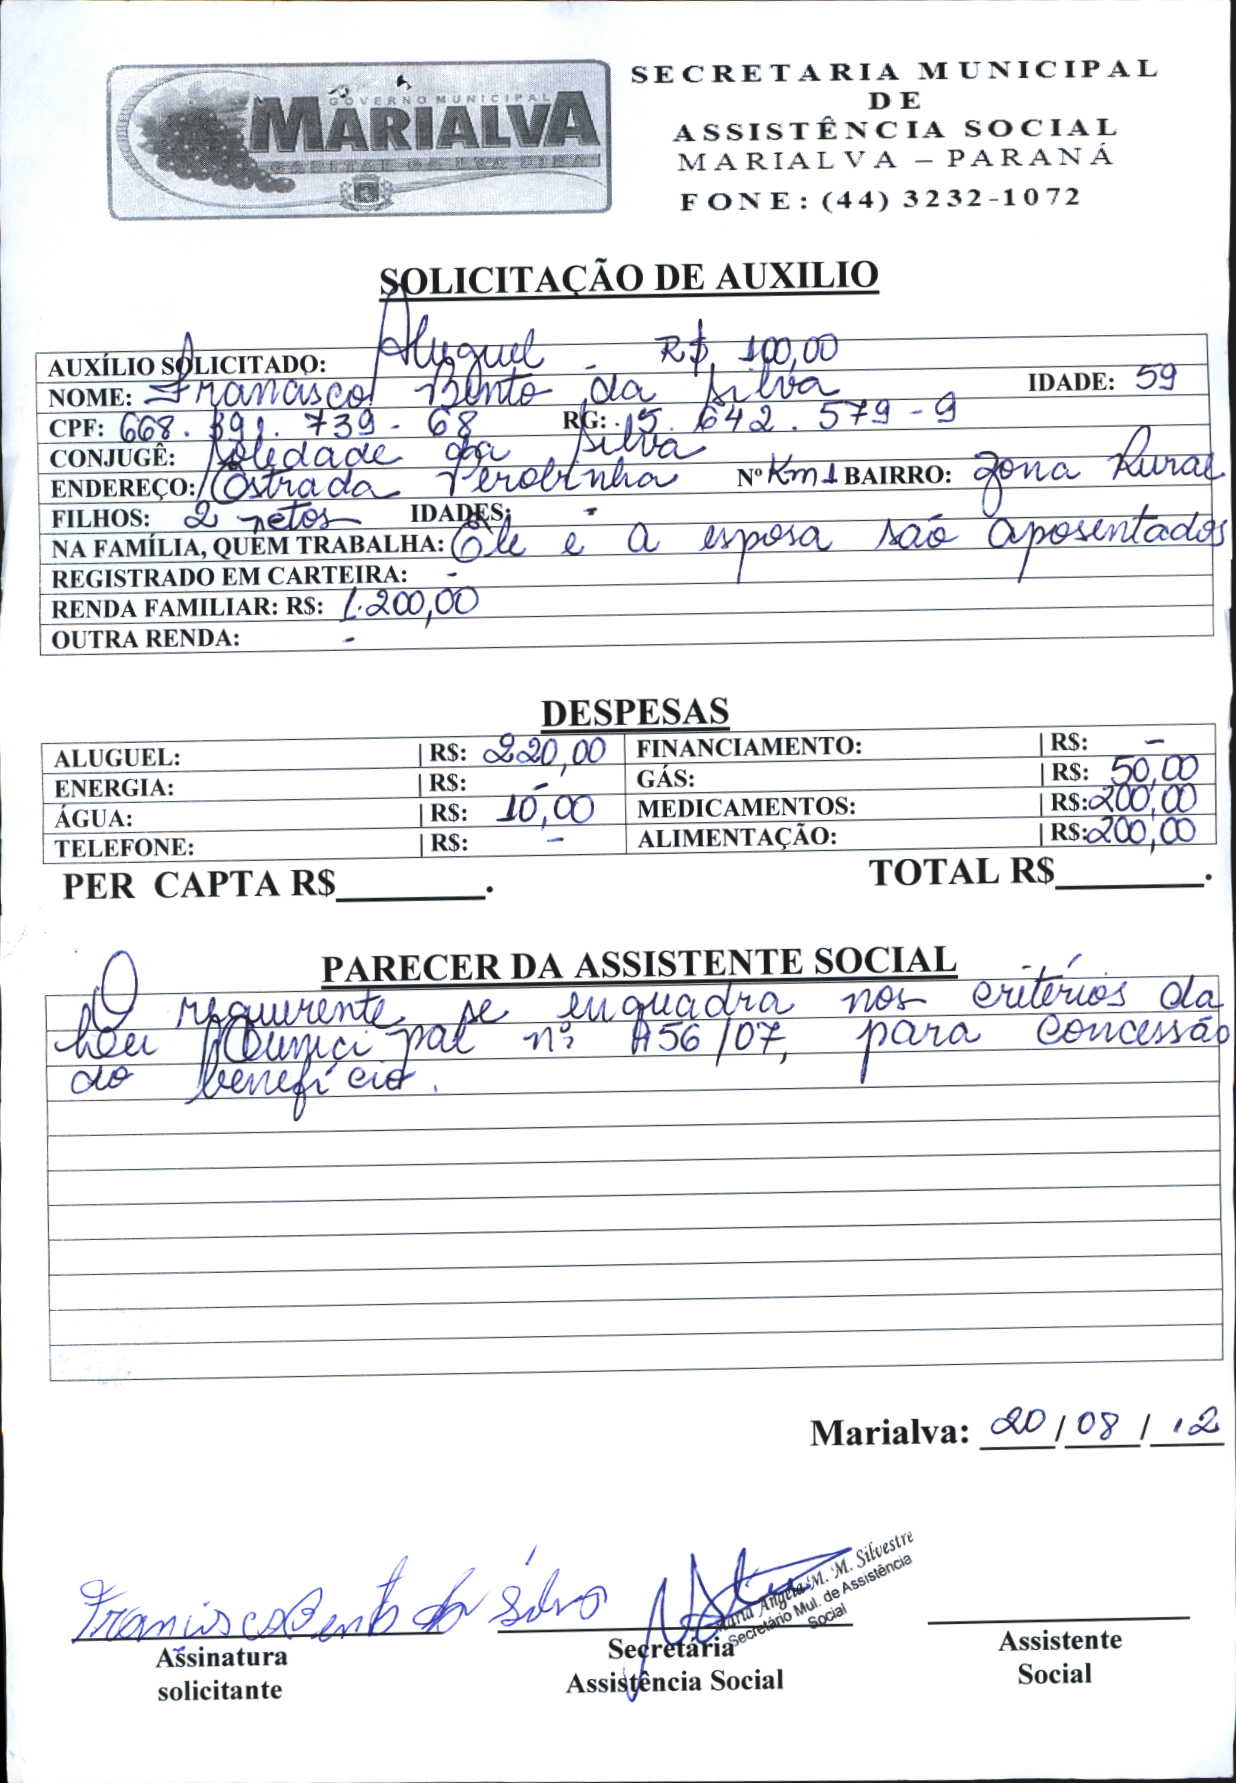 GOVERNO MUNICIPAL
MARIALVA
CAPITAL DA UVA FINA
SECRETARIA MUNICIPAL
DE
ASSISTÊNCIA SOCIAL
MARIALVA – PARANÁ
FONE: (44) 3232-1072
SOLICITAÇÃO DE AUXILIO
AUXÍLIO SOLICITADO: Aluguel - R$ 100,00
NOME: Francisco Bento da Silva IDADE: 59
CPF: 668.391.739-68 RG: 15.642.579-9
CONJUGÊ: Soledade da Silva
ENDEREÇO: Estrada Perobinha Nº Km 1 BAIRRO: Zona Rural
FILHOS: 2 netos IDADES: -
NA FAMÍLIA, QUEM TRABALHA: Ele e a esposa são aposentados
REGISTRADO EM CARTEIRA: -
RENDA FAMILIAR: R$: 1.200,00
OUTRA RENDA: -
DESPESAS
ALUGUEL: | R$: 220,00 FINANCIAMENTO: | R$: -
ENERGIA: | R$: - GÁS: | R$: 50,00
ÁGUA: | R$: 10,00 MEDICAMENTOS: | R$: 200,00
TELEFONE: | R$: - ALIMENTAÇÃO: | R$: 200,00
PER CAPTA R$________. TOTAL R$________.
PARECER DA ASSISTENTE SOCIAL
O requerente se enquadra nos critérios da
Lei Municipal nº 056/07, para concessão
do benefício.
Marialva: 20/08/12
Francisco Bento da Silva
Maria Angela M. M. Silvestre
Secretário Mul. de Assistência
Social
Assinatura
solicitante
Secretaria
Assistência Social
Assistente
Social